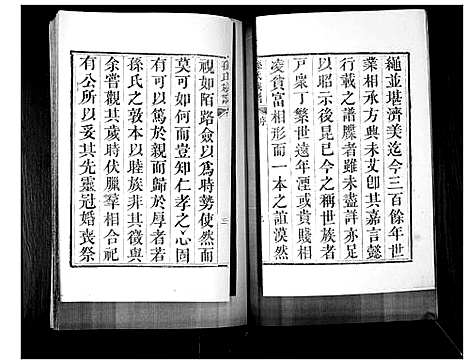 繩並堪濟美迄今三百餘年世
業相承方興未艾卽其嘉言懿
行載之譜牒者雖未盡詳亦足
以昭示後昆今之稱世族者
戸衆丁繁世遠年湮或貴賤相
凌貧富相形而一本之誼漠然
孫氏族譜
視如陌路僉以爲時勢使然而
莫可如何而豈知仁孝之心固
有可以篤於親而歸於厚者若
孫氏之敦本以睦族其徵與
余嘗觀其歲時伏臘羣相合祀
有公所以妥其先靈冠婚喪祭